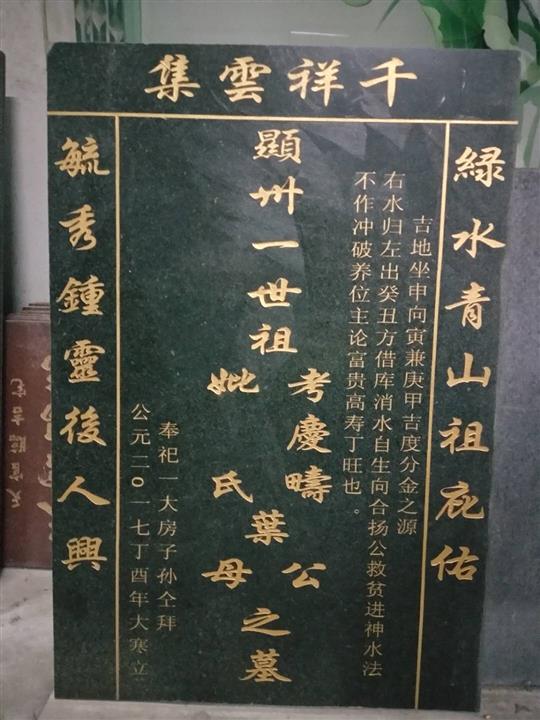 千祥雲集
緑水青山祖庇佑
吉地坐申向寅兼庚甲吉度分金之源
右水归左出癸丑方借库消水自生向合扬公救贫进神水法
不作冲破养位主论富贵高寿丁旺也。
顯卅一世祖
考慶疇公
葉
妣氏母
之墓
奉祀一大房子孙仝拜
公元二0一七丁酉年大寒立
毓秀鍾靈後人興